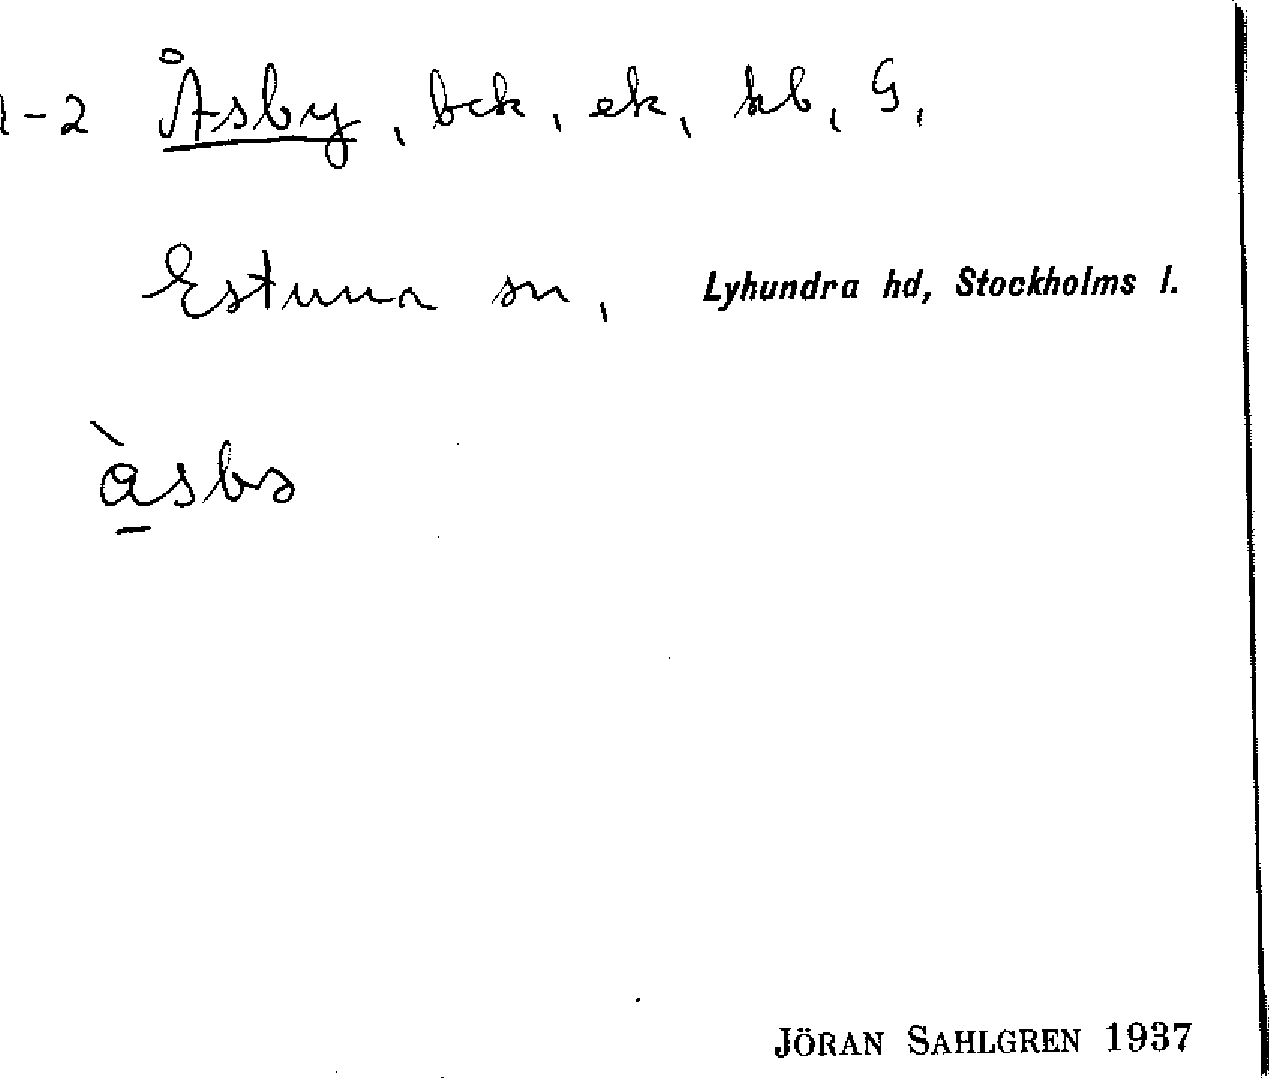 1-2 Åsby, bck, ek, kb, G,
Estuna sn, Lyhundra hd, Stockholms l.
àsbə
JÖRAN SAHLGREN 1937